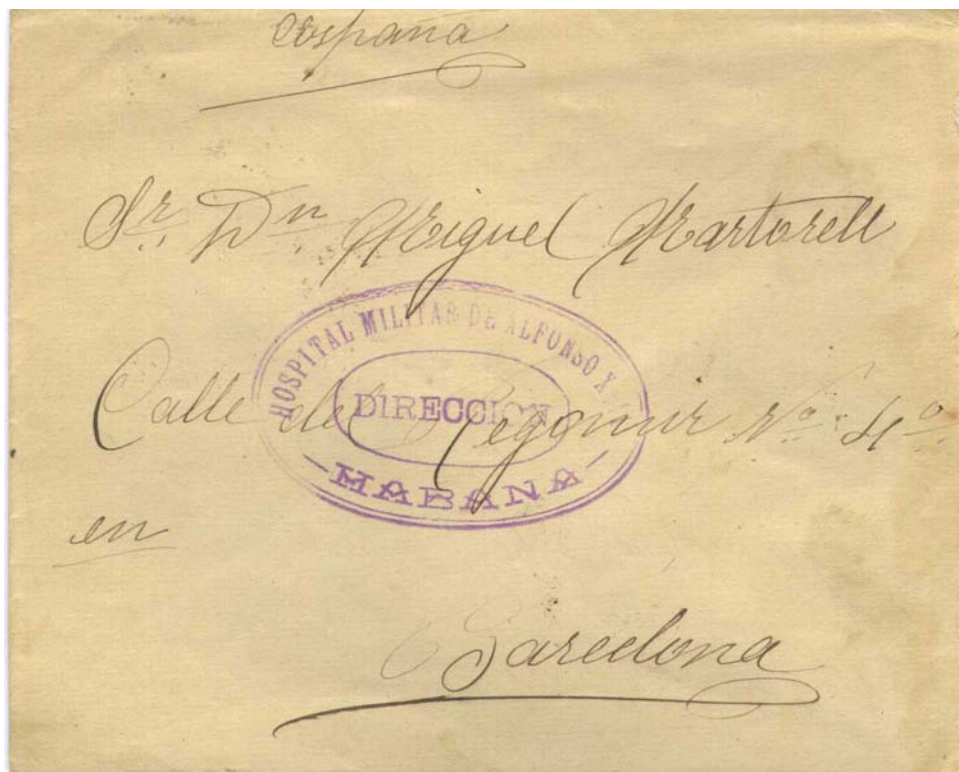 España
Sr. Dn. Miguel Martorell
HOSPITAL MILITAR DE ALFONSO X
DIRECCION
HABANA
Calle del Regomir No. 4o
en
Barcelona